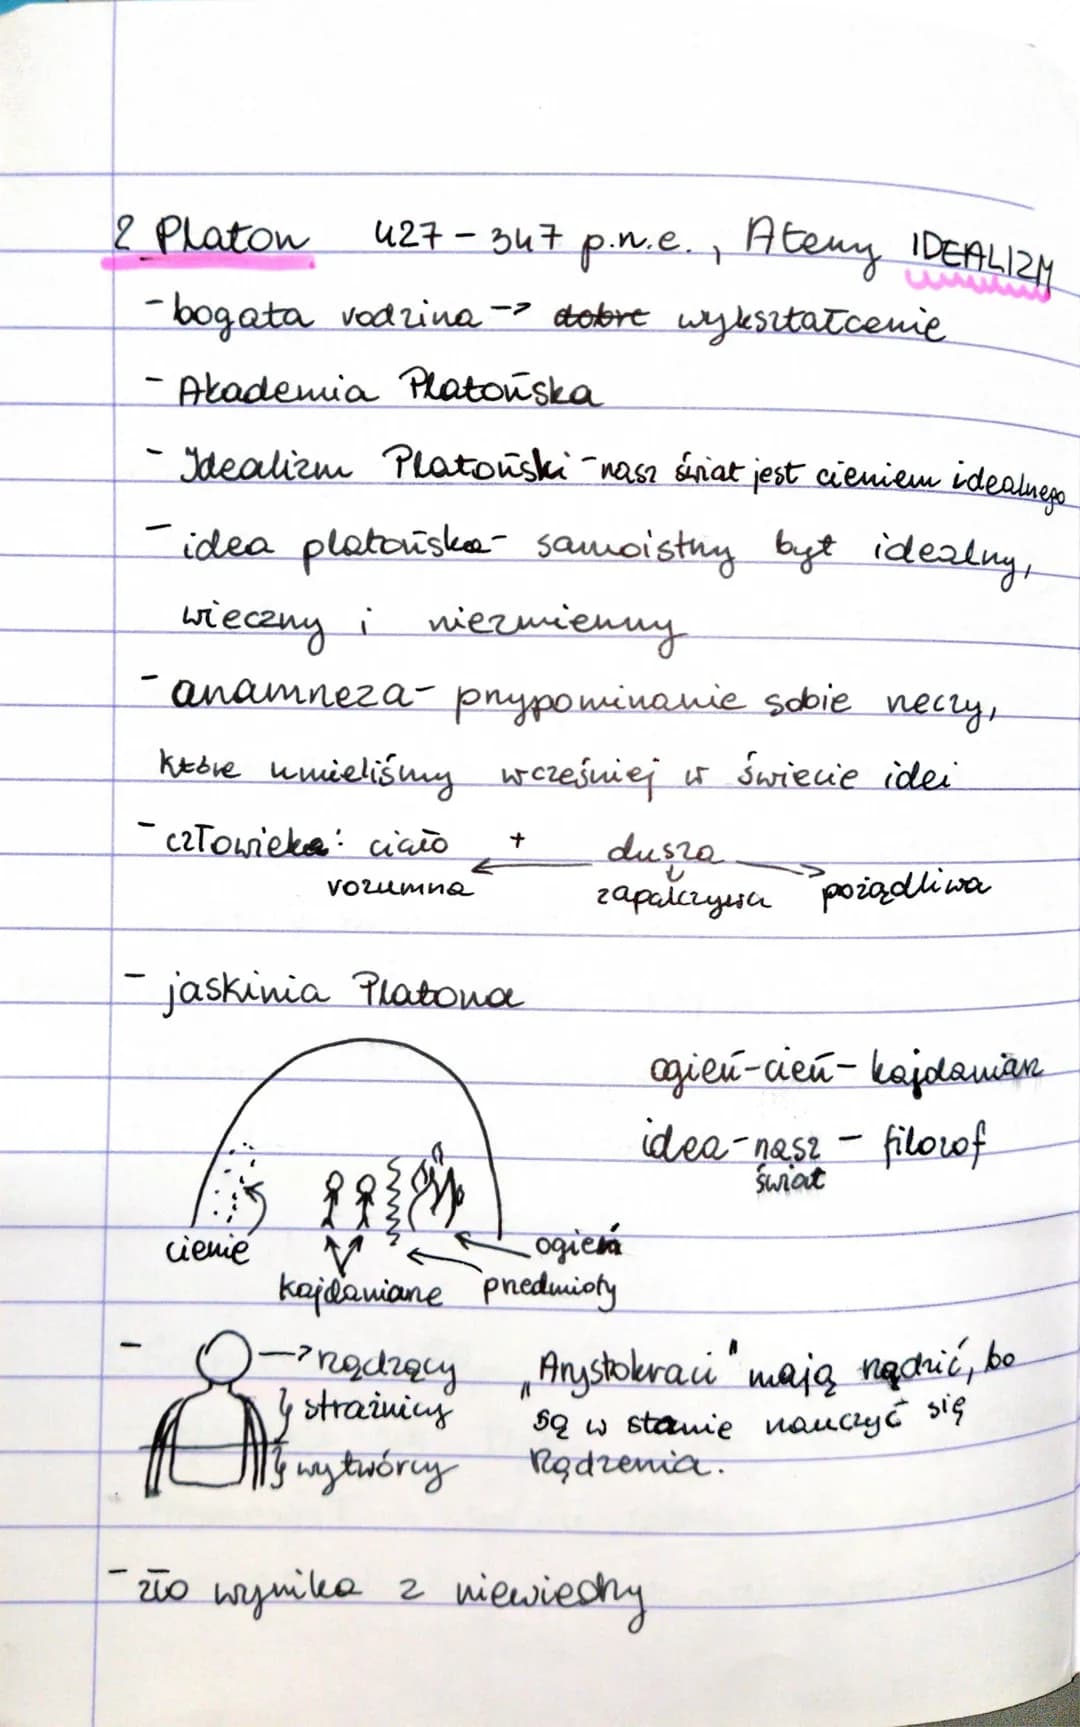 2 Platon 427-347 p.n.e., Ateny IDEALIZM
-bogata rodzina -> dobre wykształcenie
- Akademia Platońska
- Idealizm Platoński - nasz świat jest cieniem idealnego
- idea platońska- samoistny byt idealny,
wieczny i niezmienny
- anamneza- przypominanie sobie rzeczy,
które umieliśmy wcześniej w świecie idei
- człowieka: ciało + dusza
rozumna zapalczywa pożądliwa
- jaskinia Platona
ogień-cień- kajdaniarz
idea-nasz - filozof
świat
cienie
ogień
kajdaniane przedmioty
- -> rządzący „Arystokraci" mają rządzić, bo
} strażnicy są w stanie nauczyć się
} wytwórcy Rządzenia.
- zło wynika z niewiedzy